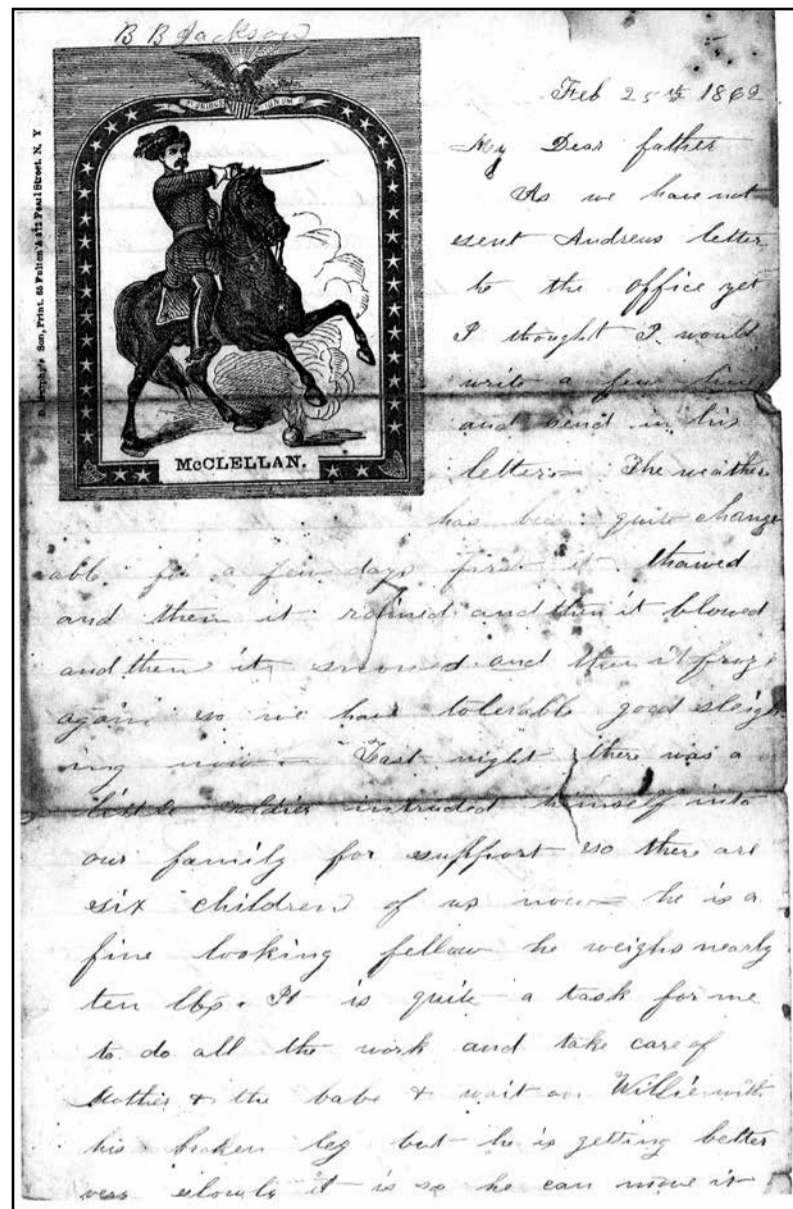 B B Jackson
E PLURIBUS UNUM
Son, Print. 65 Fulton & 372 Pearl Street. N. Y
McCLELLAN.
Feb 25th 1862
My Dear father
As we have not
sent Andrews letter
to the office yet
I thought I would
write a few lines
and send in his
letter. The weather
has been quite change
able for a few days first it thawed
and then it rained and then it blowed
and then it snowed and then it froze
again so we have tolerable good sleigh
ing now. Last night there was a
little soldier intruded himself into
our family for support so there are
six children of us now he is a
fine looking fellow he weighs nearly
ten lbs. It is quite a task for me
to do all the work and take care of
Mother & the babe & wait on Willie with
his broken leg but he is getting better
very slowly it is so he can move it